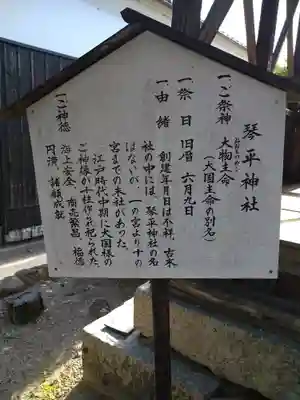 琴平神社
一、ご祭神 大物主命
(大国主命の別名)
一、祭日 旧暦 六月九日
一、由緒 創建年月日は不祥、古末
社の中には、琴平神社の名
はないが、一の宮より十の
宮までの末社があった。
江戸時代中期に大国様の
ご神像が千柱作られ祀られた。
一、ご神徳
海上安全、商売繁昌、福徳
円満、諸願成就